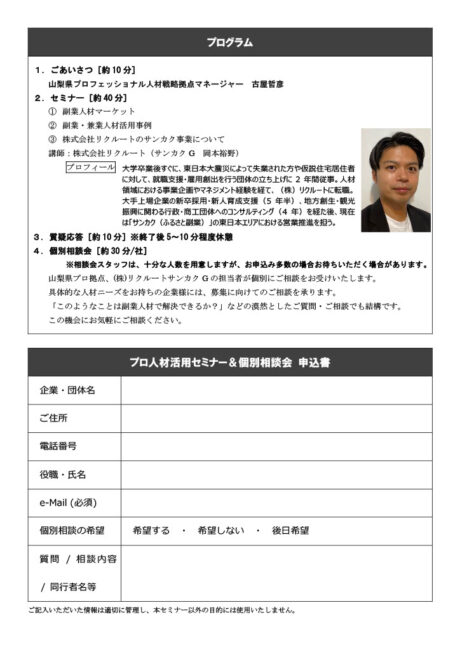 プログラム
１．ごあいさつ［約10分］
山梨県プロフェッショナル人材戦略拠点マネージャー　古屋哲彦
２．セミナー［約40分］
①　副業人材マーケット
②　副業・兼業人材活用事例
③　株式会社リクルートのサンカク事業について
講師：株式会社リクルート（サンカクG　岡本裕野）
プロフィール
大学卒業後すぐに、東日本大震災によって失業された方や仮設住宅居住者
に対して、就職支援・雇用創出を行う団体の立ち上げに 2 年間従事。人材
領域における事業企画やマネジメント経験を経て、（株）リクルートに転職。
大手上場企業の新卒採用・新人育成支援（5 年半）、地方創生・観光
振興に関わる行政・商工団体へのコンサルティング（4 年）を経た後、現在
は「サンカク（ふるさと副業）」の東日本エリアにおける営業推進を担う。
３．質疑応答［約10分］※終了後5～10分程度休憩
４．個別相談会［約30分/社］
※相談会スタッフは、十分な人数を用意しますが、お申込み多数の場合お待ちいただく場合があります。
山梨県プロ拠点、(株)リクルートサンカクGの担当者が個別にご相談をお受けいたします。
具体的な人材ニーズをお持ちの企業様には、募集に向けてのご相談を承ります。
「このようなことは副業人材で解決できるか？」などの漠然としたご質問・ご相談でも結構です。
この機会にお気軽にご相談ください。
プロ人材活用セミナー＆個別相談会 申込書
企業・団体名
ご住所
電話番号
役職・氏名
e-Mail (必須)
個別相談の希望
希望する　・　希望しない　・　後日希望
質問 / 相談内容
/ 同行者名等
ご記入いただいた情報は適切に管理し、本セミナー以外の目的には使用いたしません。